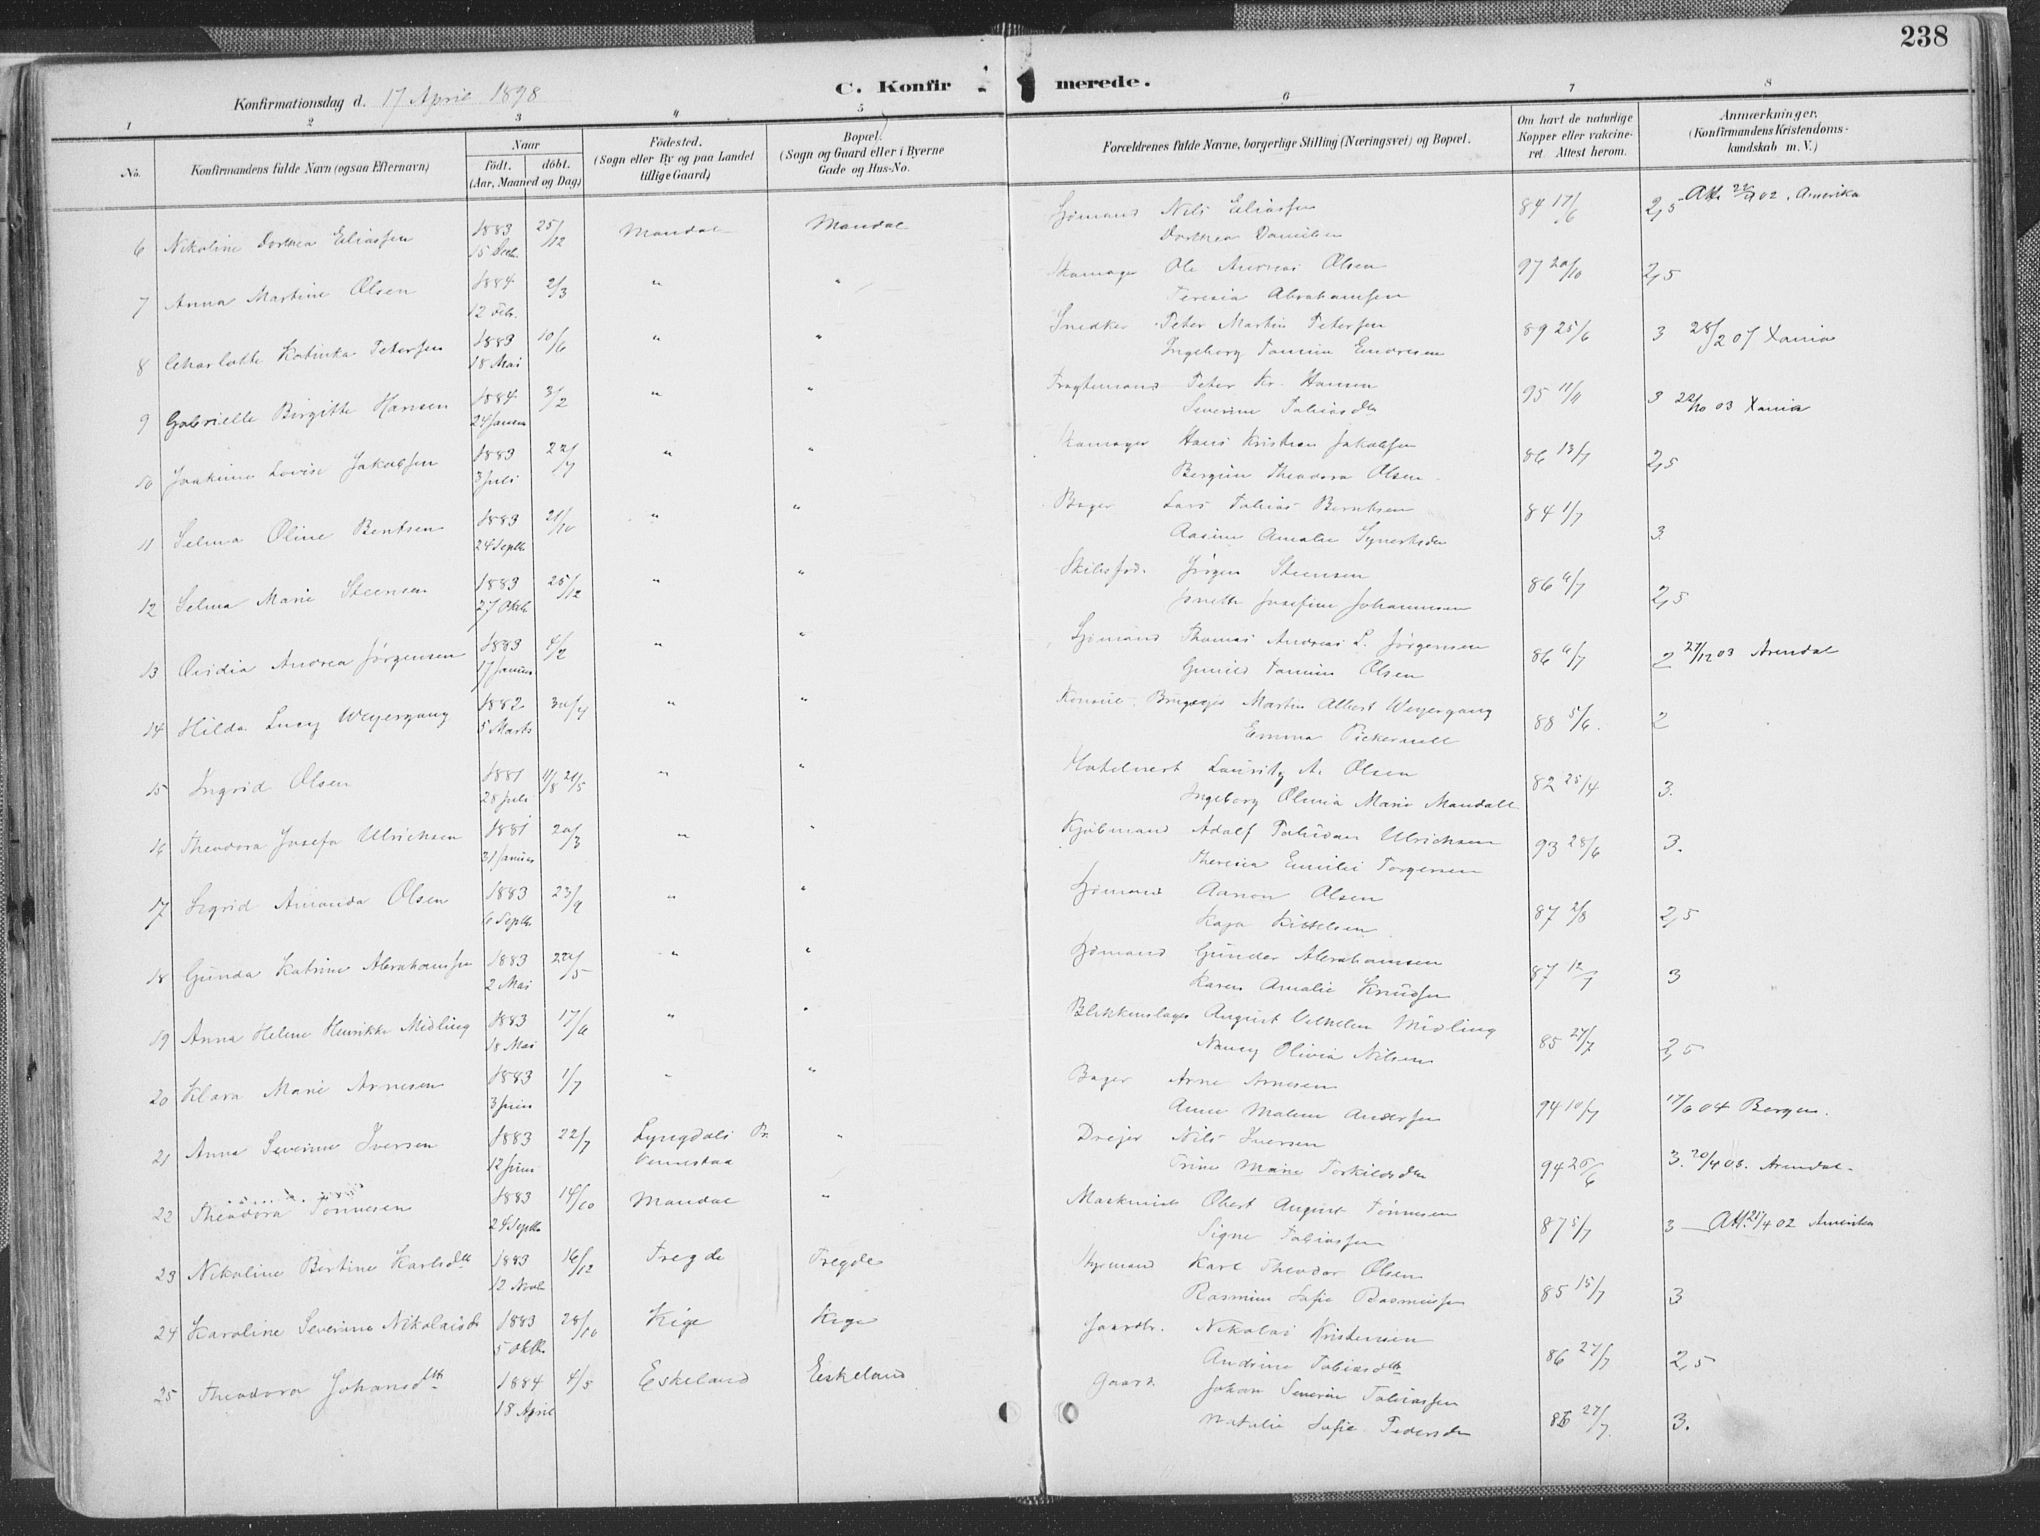 238
Konfirmationsdag d. 17 April 1898
C. Konfirmerede.
1 2 3 4 5 6 7 8
No. Konfirmandens fulde Navn (ogsaa Efternavn) Naar født. døbt. (Aar, Maaned og Dag) Fødested. (Sogn eller By og paa Landet tillige Gaard) Bopæl. (Sogn og Gaard eller i Byerne Gade og Hus-No. Forældrenes fulde Navne, borgerlige Stilling (Næringsvei) og Bopæl. Om havt de naturlige Kopper eller vaccineret. Attest herom. Anmærkninger. (Konfirmandens Kristendomskundskab m. V.)
6 Nikoline Dorthea Eliassen 1883 15 Decb. 25/12 Mandal Mandal Sjømand Nils Eliassen 84 17/6 2,5 Att. 02. Amerika
Dorthea Danielsen
7 Anna Martine Olsen 1884 12 Febr. 2/3 " " Skomager Ole Andreas Olsen 97 20/10 2,5
Teresia Abrahamsen
8 Charlotte Katinka Petersen 1883 18 Mai 10/6 " " Snedker Peter Martin Petersen 89 25/6 3 28/2 07 Xania
Ingeborg Tomine Endresen
9 Gabrielle Birgitte Hansen 1884 24 Januar 3/2 " " Fragtemand Peter Kr. Hansen 95 11/11 3 22/10 03 Xania
Severine Tobiasdtr
10 Joakime Lovise Jakobsen 1883 3 Juli 22/7 " " Skomager Hans Kristian Jakobsen 86 13/7 2,5
Bergine Theodora Olsen
11 Selma Oline Bentsen 1883 24 Septb. 21/10 " " Bager Lars Tobias Berntsen 84 1/7 3.
Aasine Amalie
12 Selma Marie Steensen 1883 27 Oktb. 25/12 " " Skibsfør. Jørgen Steensen 86 6/7 2,5
Josefine Johannesen
13 Ovidia Andrea Jørgensen 1883 17 Januar 4/2 " " Sjømand Thomas Andreas L. Jørgensen 86 6/7 2 27/12 03 Arendal
Gunild Tomine Olsen
14 Hilda Lucy Weyergang 1882 5 Marts 30/4 " " Konsul. Martin Albert Weyergang 88 5/6. 2
Emma Pickernell
15 Ingrid Olsen 1881 28 Juli " " Hotelvert Lauritz A. Olsen 82 25/4 3.
Ingeborg Olivia Marie Mandall
16 Theodora Josefa Ulrichsen 1881 31 Januar 20/3 " " Kjøbmand Adolf Ulrichsen 93 28/6 3.
Theresia Emilie Torgersen
17 Sigrid Amanda Olsen 1883 6 Septb. 23/9 " " Sjømand Aanon Olsen 87 2/8 2,5
Kaja Kittelsen
18 Gunda Katrine Abrahamsen 1883 2 Mai 22/5 " " Sjømand Gunder Abrahamsen 87 12/7 3
Karen Amalie Knudsen
19 Anna Helene Henrikke Midling 1883 18 Mai 17/6 " " Blikkenslager August Vilhelm Midling 85 27/7 2,5
Nancy Olivia Nilsen
20 Klara Marie Arnesen 1883 3 Juni 1/7 " " Bager Arne Arnesen 94 10/7 17/6 04 Bergen.
Anne Malene Andersen
21 Anna Severine Iversen 1883 12 Juni 22/7 Lyngdals Pr. " Drejer Nils Iversen 94 26/6 3. 20/4 08. Arendal.
Trine Marie Torkildsdtr
22 Theodora Tønnesen 1883 28 Septb. 14/10 Mandal " Maskinist Obert August Tønnesen 87 5/7 3 Att. 21/4 02 Amerika
Signe Tobiassen
23 Nikoline Bertine Karlsdtr 1883 12 Novb. 16/12 Tregde Tregde Styrmand Karl Theodor Olsen 85 15/7 3
Rasmine Sofie Rasmussen
24 Karoline Severine Nikolaisdtr 1883 5 Oktb. 28/10 Kige Kige Gaardbr. Nikolai Kristensen 86 27/7 2,5
Andrine Tobiasdtr
25 Theodora Johansdtr 1884 18 April 4/5 Eskeland Eskeland Gaardb. Johan Severin Tobiassen 86 27/7. 3.
Natalie Sofie Pedersdtr